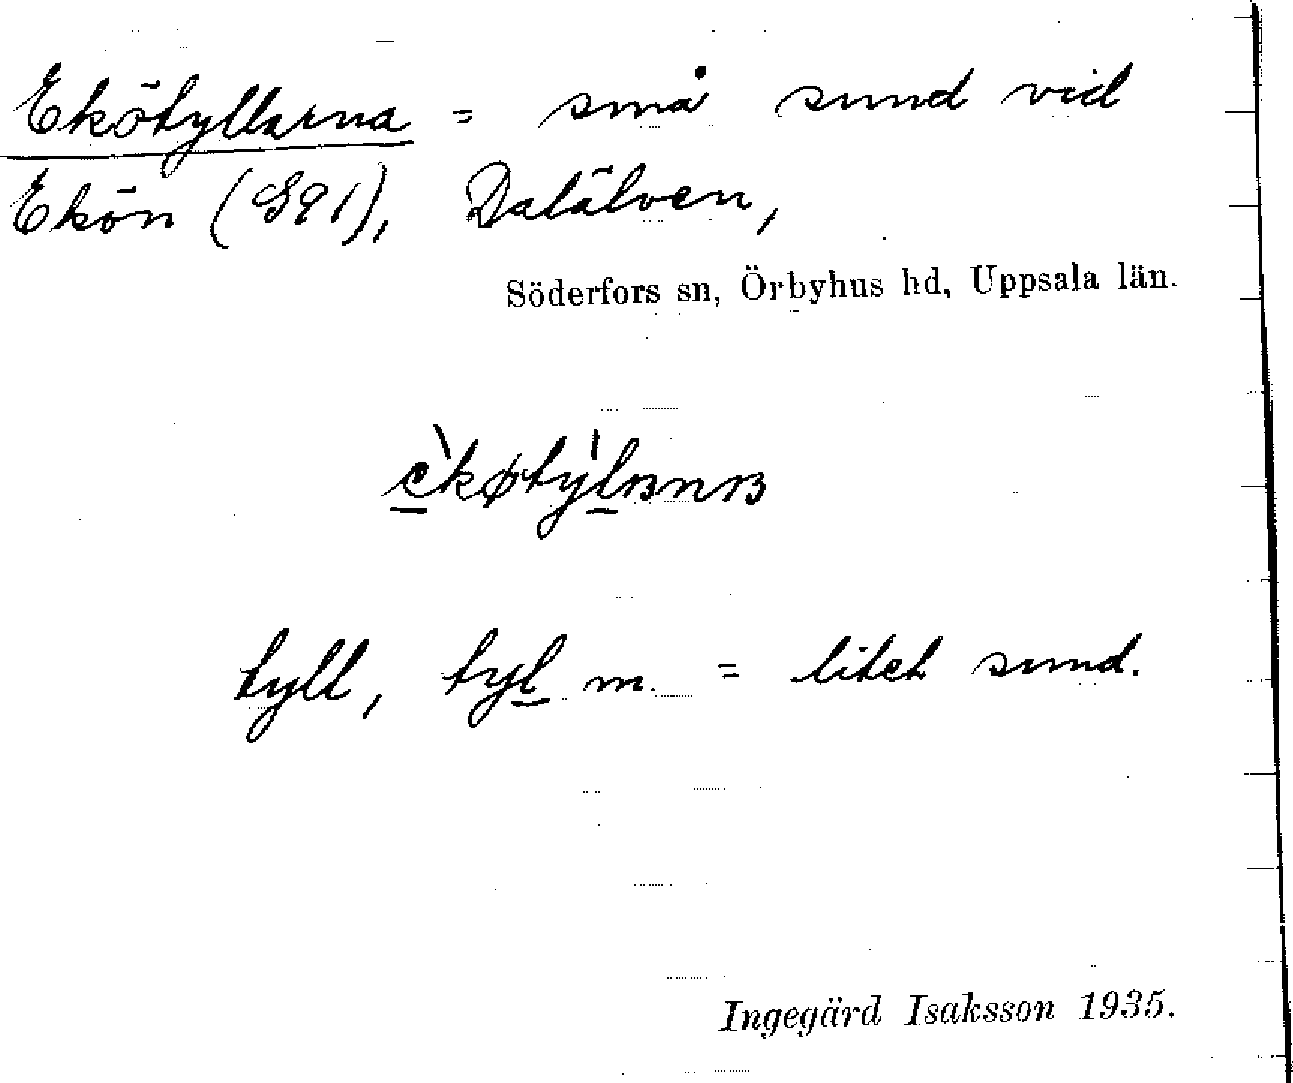 Ekötyllarna = små sund vid
Ekön (S91), Dalälven,
Söderfors sn, Örbyhus hd, Uppsala län.
tyll, tyl m. = litet sund.
Ingegärd Isaksson 1935.